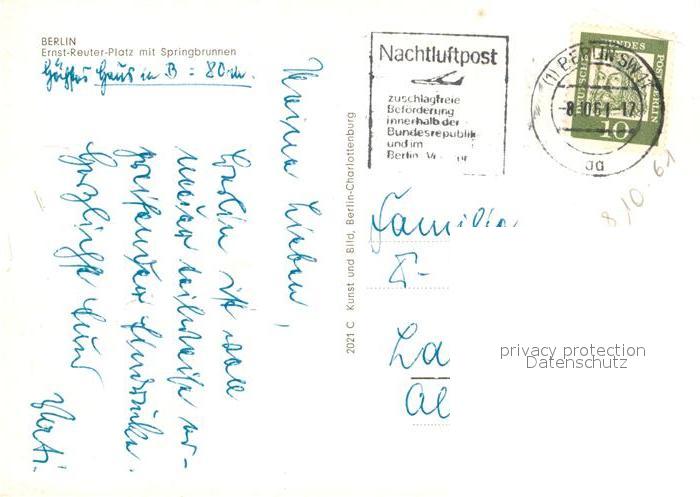 BERLIN
Ernst-Reuter-Platz mit Springbrunnen
Höchstes Haus in B = 80 m.
Meine Lieben,
Berlin ist voll
neuer teilweise er-
greifender Eindrücke.
Herzlichst Euer
Vati.
2021 C Kunst und Bild, Berlin-Charlottenburg
Nachtluftpost
zuschlagfreie
Beförderung
innerhalb der
Bundesrepublik
und im
Berlin
(1) BERLIN SW
-8.10.61-17
DEUTSCHE BUNDESPOST BERLIN
10
8/10.61
Familie
La
Al
privacy protection
Datenschutz